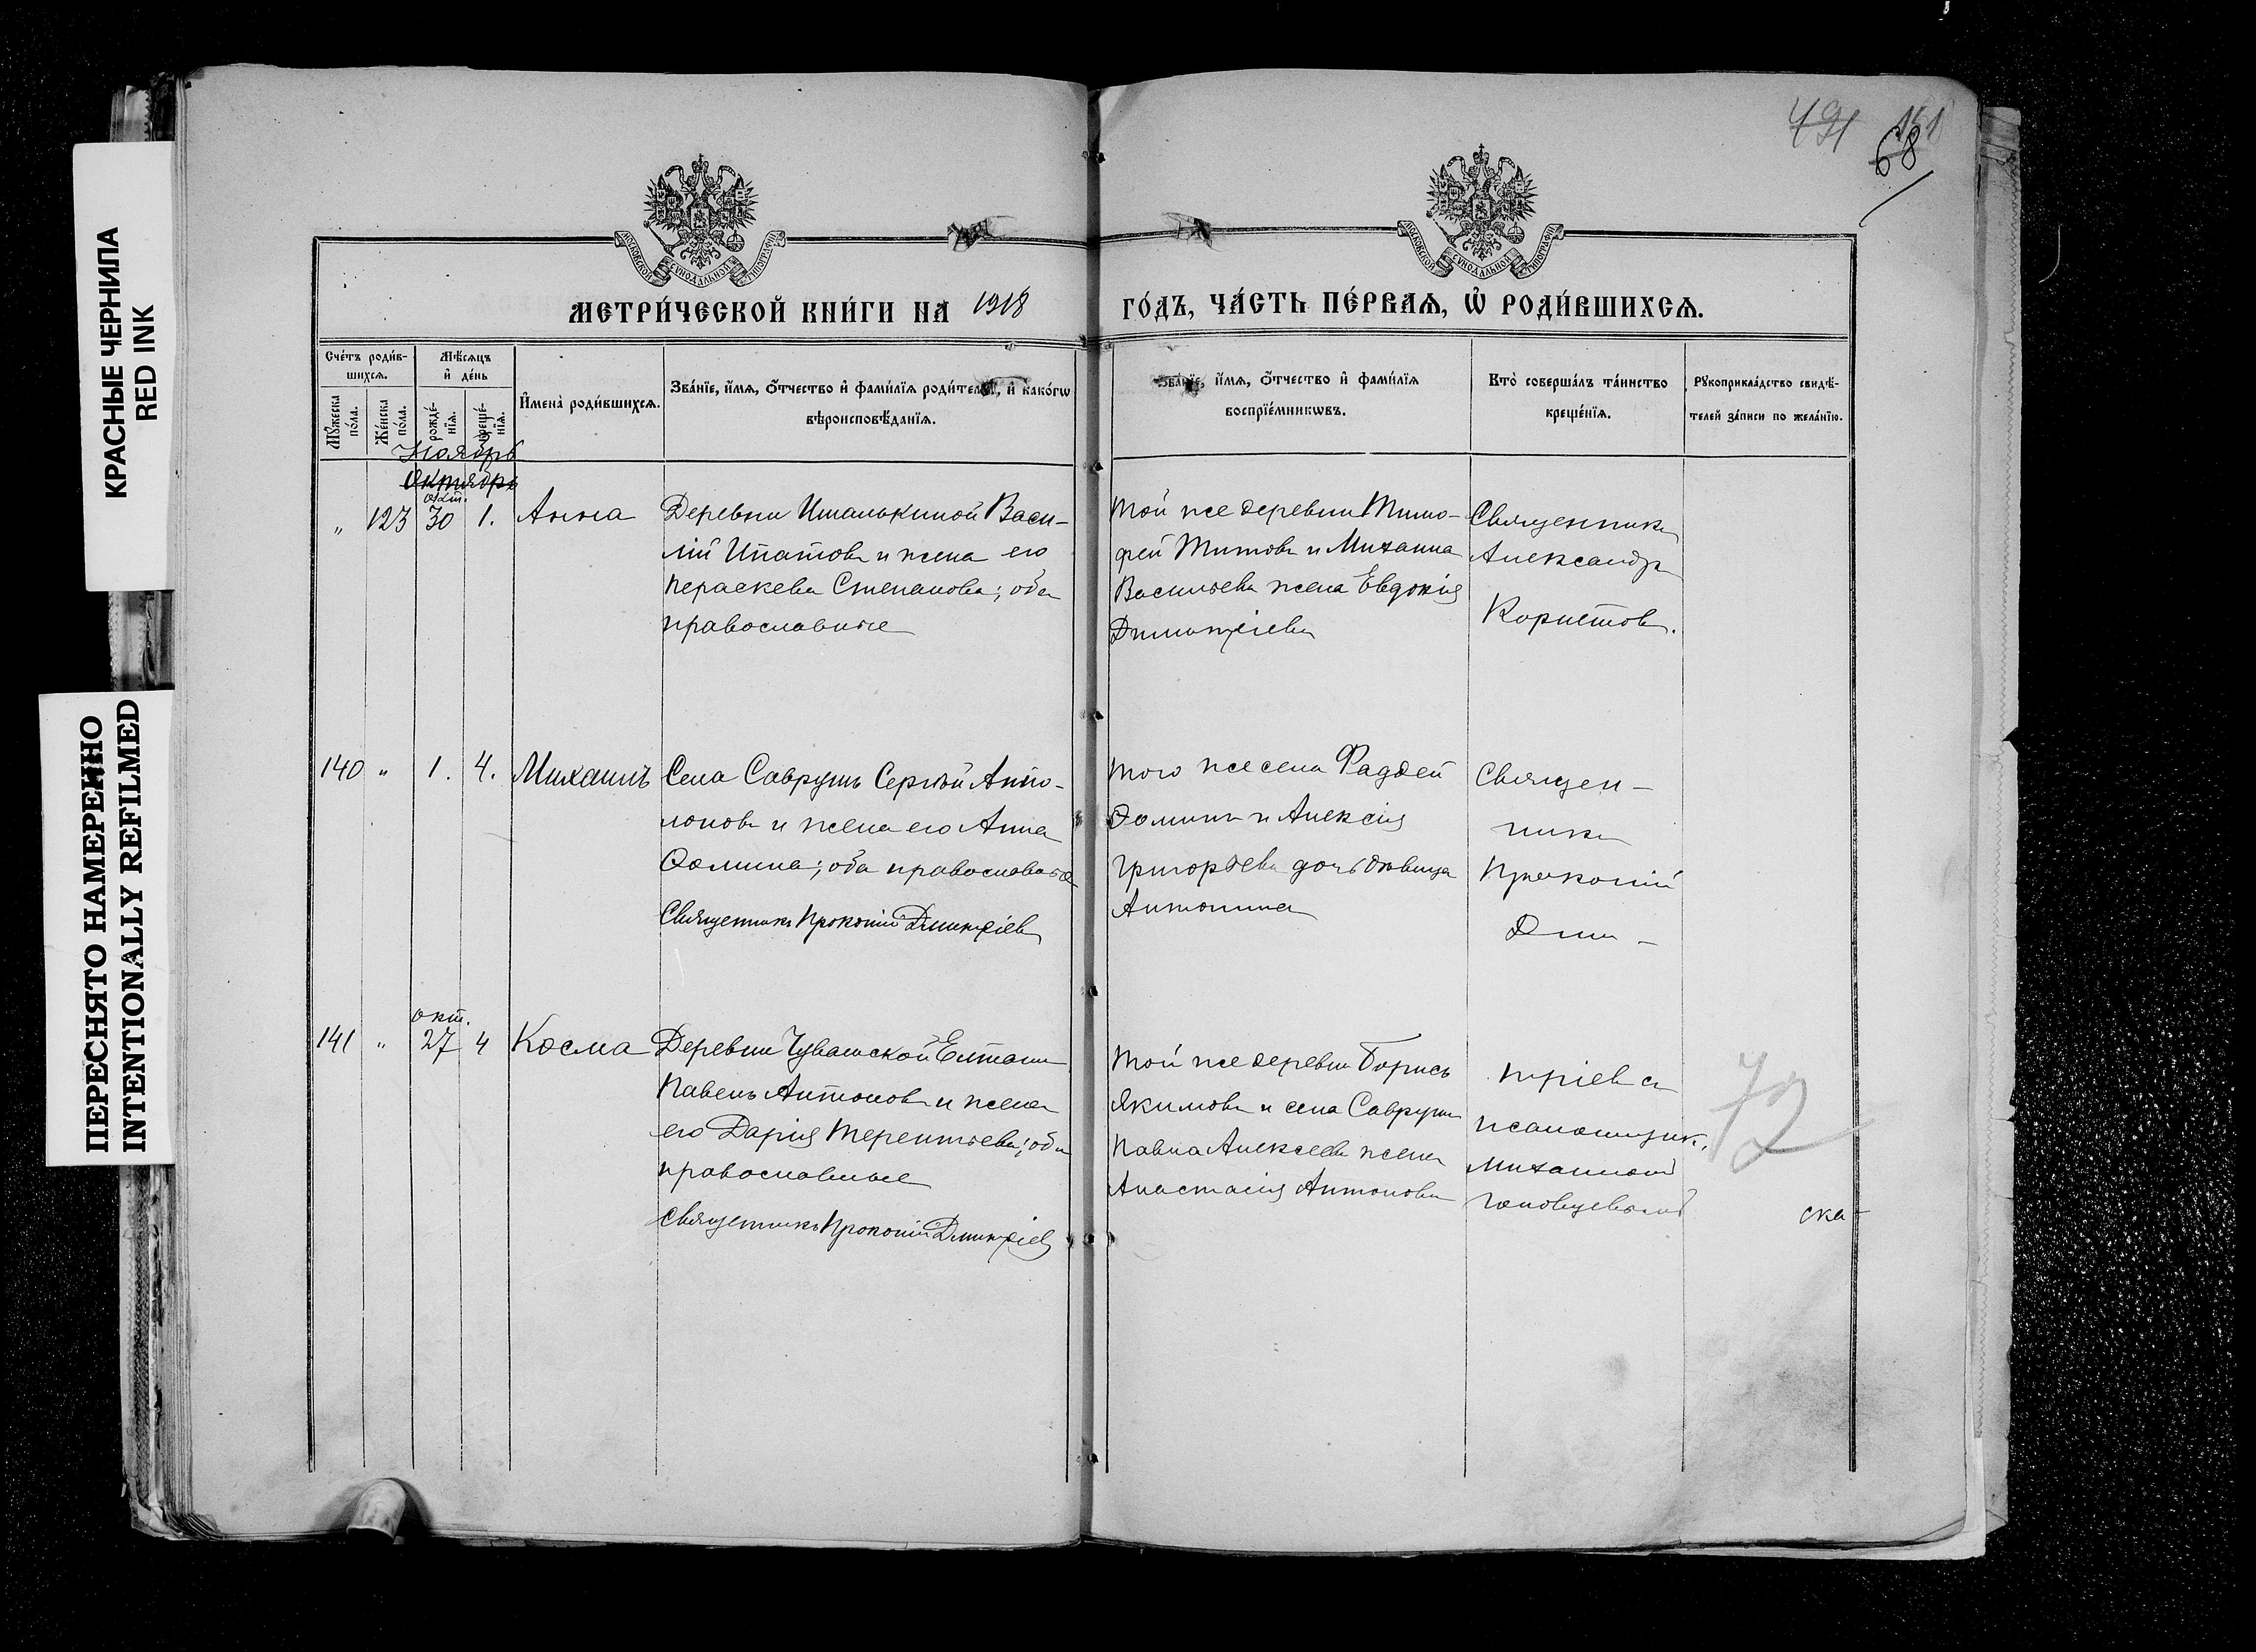 КРАСНЫЕ ЧЕРНИЛА
RED INK
ПЕРЕСНЯТО НАМЕРЕННО
INTENTIONALLY REFILMED
491
68
МОСКОВСКОЙ СѴНОДАЛЬНОЙ ТИПОГРАФІИ
МОСКОВСКОЙ СѴНОДАЛЬНОЙ ТИПОГРАФІИ
МЕТРИ́ЧЕСКОЙ КНИ́ГИ НА 1918 ГО́ДЪ, ЧА́СТЬ ПЕ́РВАѦ, Ѡ҆ РОДИ́ВШИХСѦ.
Сче́тъ роди́в-
шихсѧ.
Мꙋ́жеска по́ла.
Же́нска по́ла.
Мѣ́сѧцъ
и҆ де́нь
рожде́-
нїѧ.
креще́-
нїѧ.
И҆мена̀ роди́вшихсѧ.
Зва́нїе, и҆́мѧ, ѻ҆́тчество и҆ фами́лїѧ роди́телей, и҆ како́гѡ
вѣроисповѣ́данїѧ.
Зва́нїе, и҆́мѧ, ѻ҆́тчество и҆ фами́лїѧ
воспрїе́мникѡвъ.
Кто̀ соверша́лъ та́инство
креще́нїѧ.
Рꙋкоприкла́дство свидѣ́-
телей за́писи по жела́нїю.
Ноябрь
Октябрь
окт.
„ 123 30 1. Анна
Деревни Ишалькиной Васи-
лій Ипатовъ и жена его
Параскева Степанова; оба
православные
Той же деревни Тимо-
фей Титовъ и Михаила
Васильева жена Евдокія
Димитріева
Священникъ
Александръ
Користовъ.
140 „ 1. 4. Михаилъ
Села Саврушъ Сергѣй Апо-
лоновъ и жена его Анна
Фомина; оба православные
Священникъ Прокопій Димитріевъ
Того же села Фаддей
Фоминъ и Алексія
Григорьева дочь дѣвица
Антонина
Священ-
никъ
Прокопій
Дми-
окт.
141 „ 27 4 Косма
Деревни Чувашской Елтани
Павелъ Антоновъ и жена
его Дарія Терентьева; оба
православные
Священникъ Прокопій Димитріевъ
Той же деревни Борисъ
Якимовъ и села Саврушъ
Павла Алексѣева жена
Анастасія Антонова
тріевъ съ
псаломщик.
Михаиломъ
72
ска-